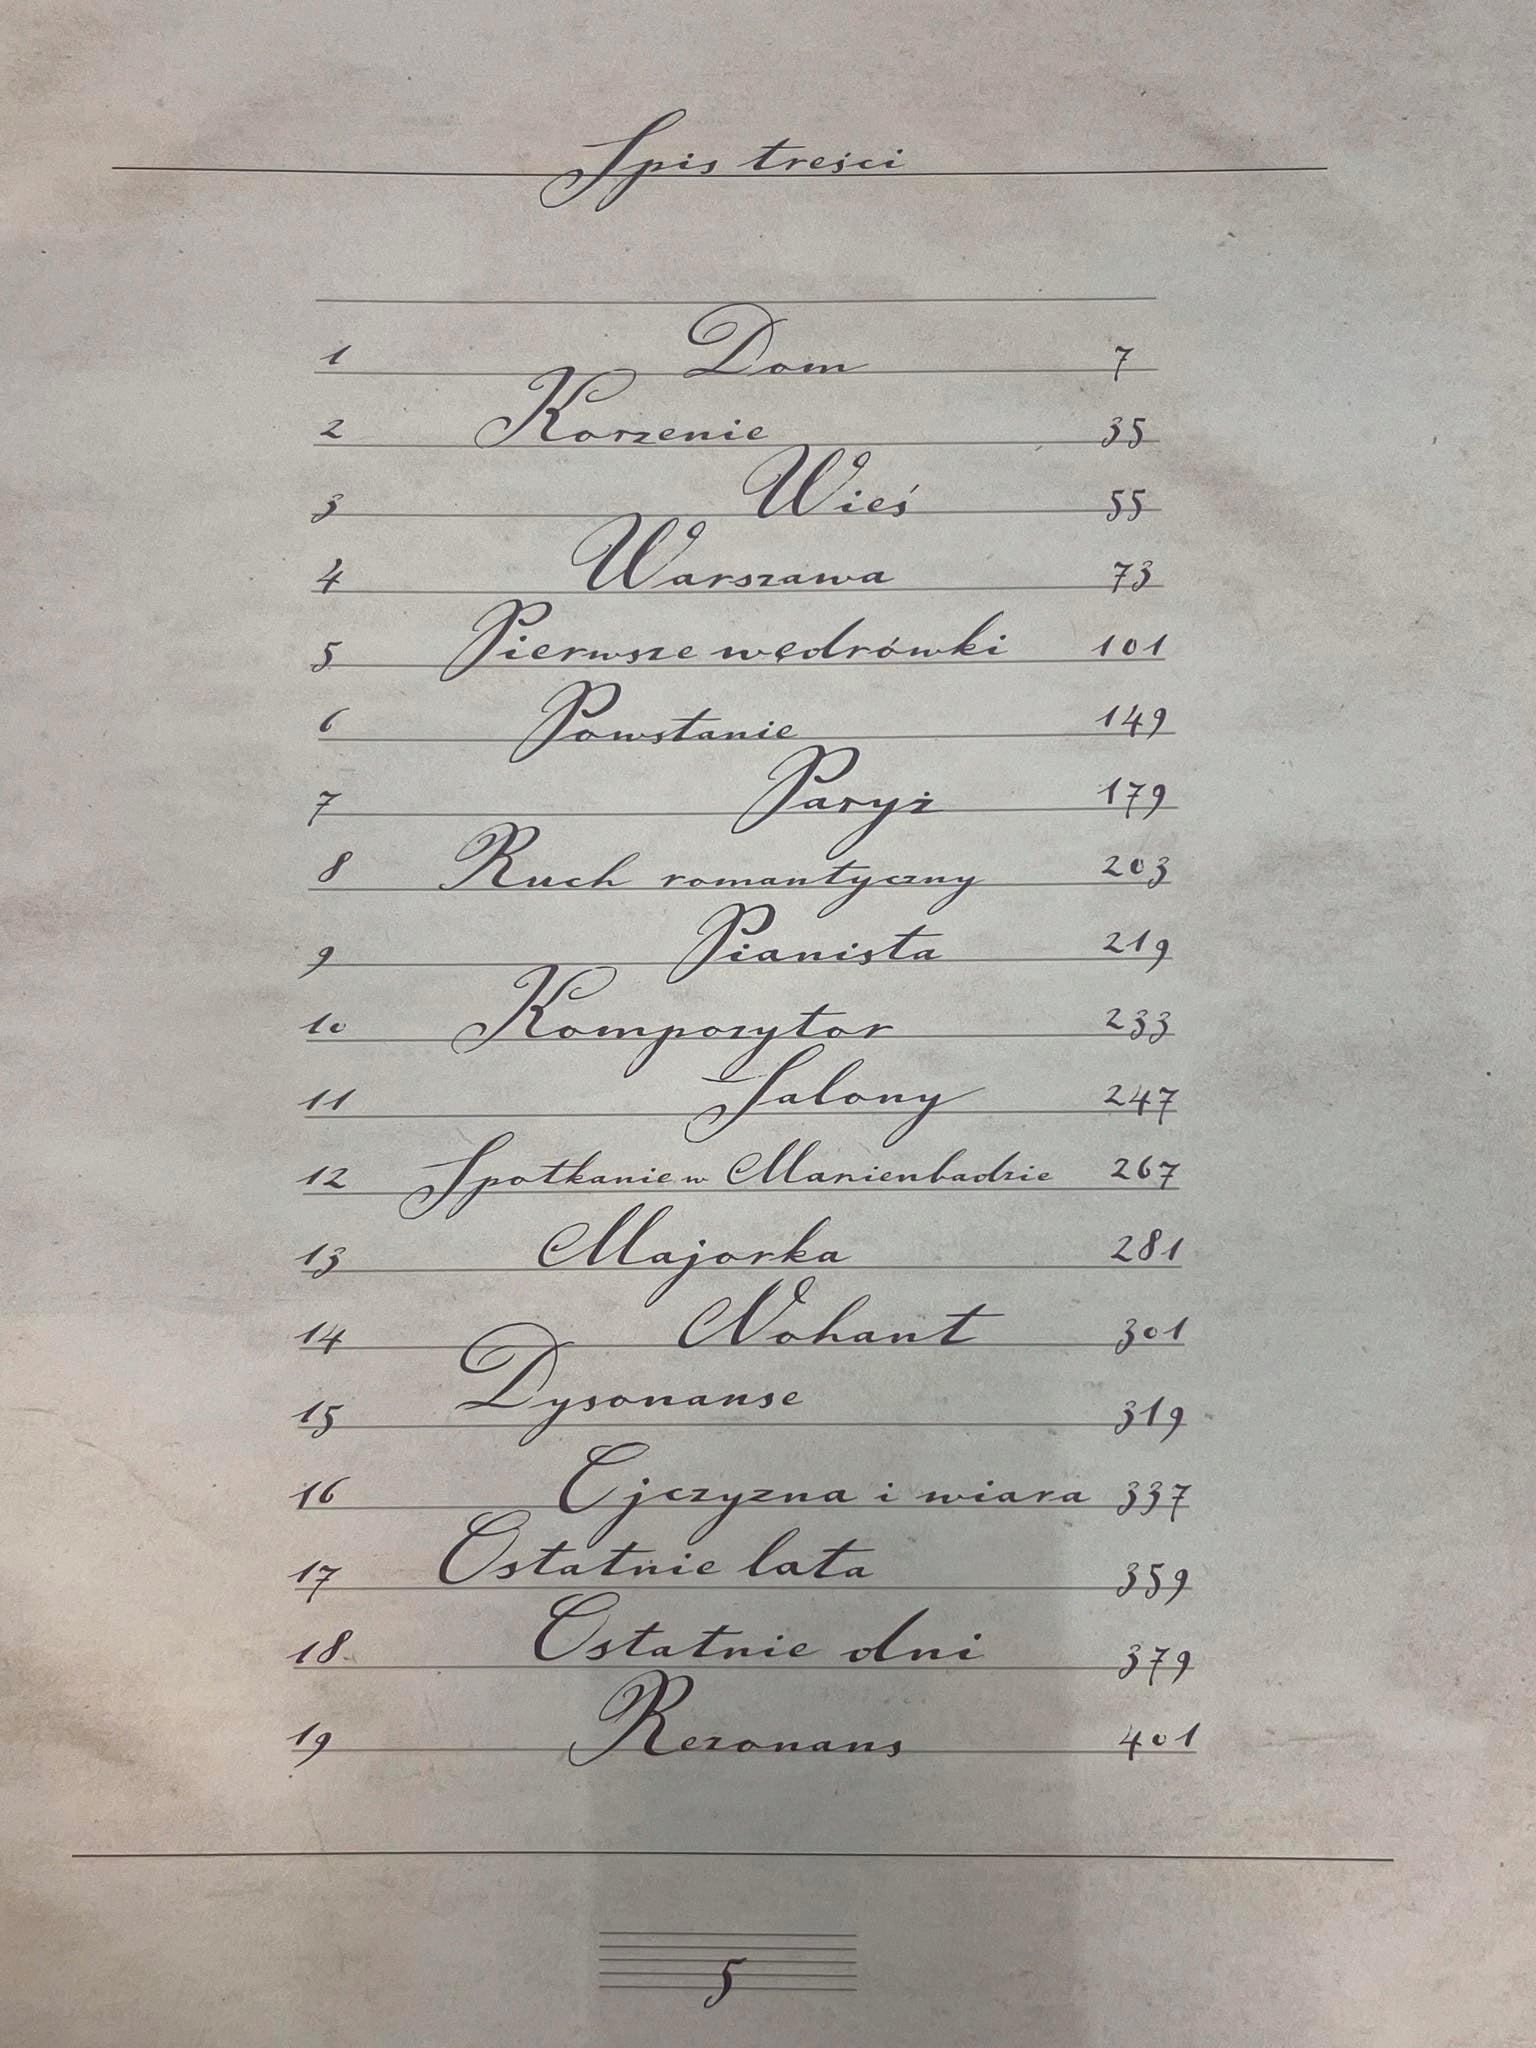 Spis treści
1 Dom 7
2 Korzenie 35
3 Wieś 55
4 Warszawa 73
5 Pierwsze wędrówki 101
6 Powstanie 149
7 Paryż 179
8 Ruch romantyczny 203
9 Pianista 219
10 Kompozytor 233
11 Salony 247
12 Spotkanie w Marienbadzie 267
13 Majorka 281
14 Nohant 301
15 Dysonanse 319
16 Ojczyzna i wiara 337
17 Ostatnie lata 359
18 Ostatnie dni 379
19 Rezonans 401
5